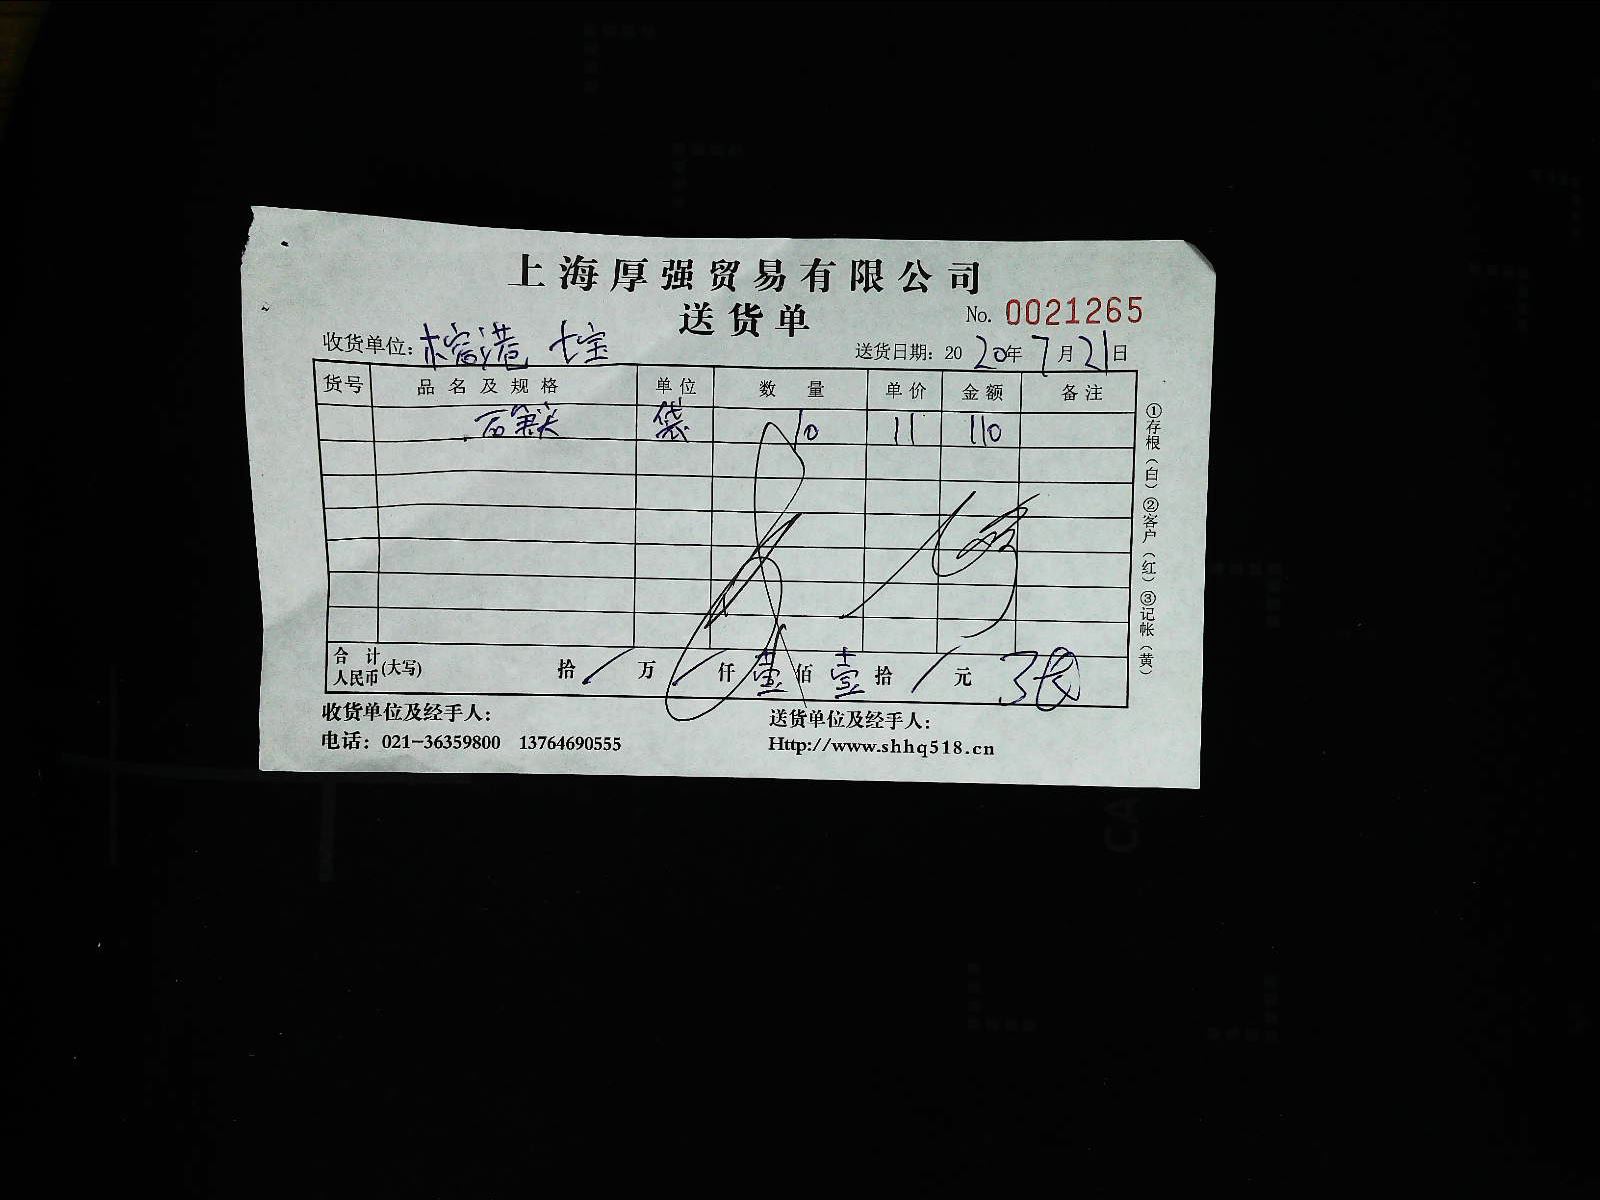 上海厚强贸易有限公司
送货单
No. 0021265
收货单位: 榕港 七宝
送货日期: 2020年7月21日
货号 品名及规格 单位 数量 单价 金额 备注
袋 10 11 110
合计人民币(大写) 拾/万/仟壹佰壹拾/元
收货单位及经手人: 送货单位及经手人:
电话: 021-36359800 13764690555 Http://www.shhq518.cn
①存根(白)②客户(红)③记帐(黄)